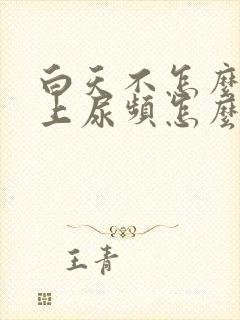 白天不怎麼
上尿頻怎麼
王青